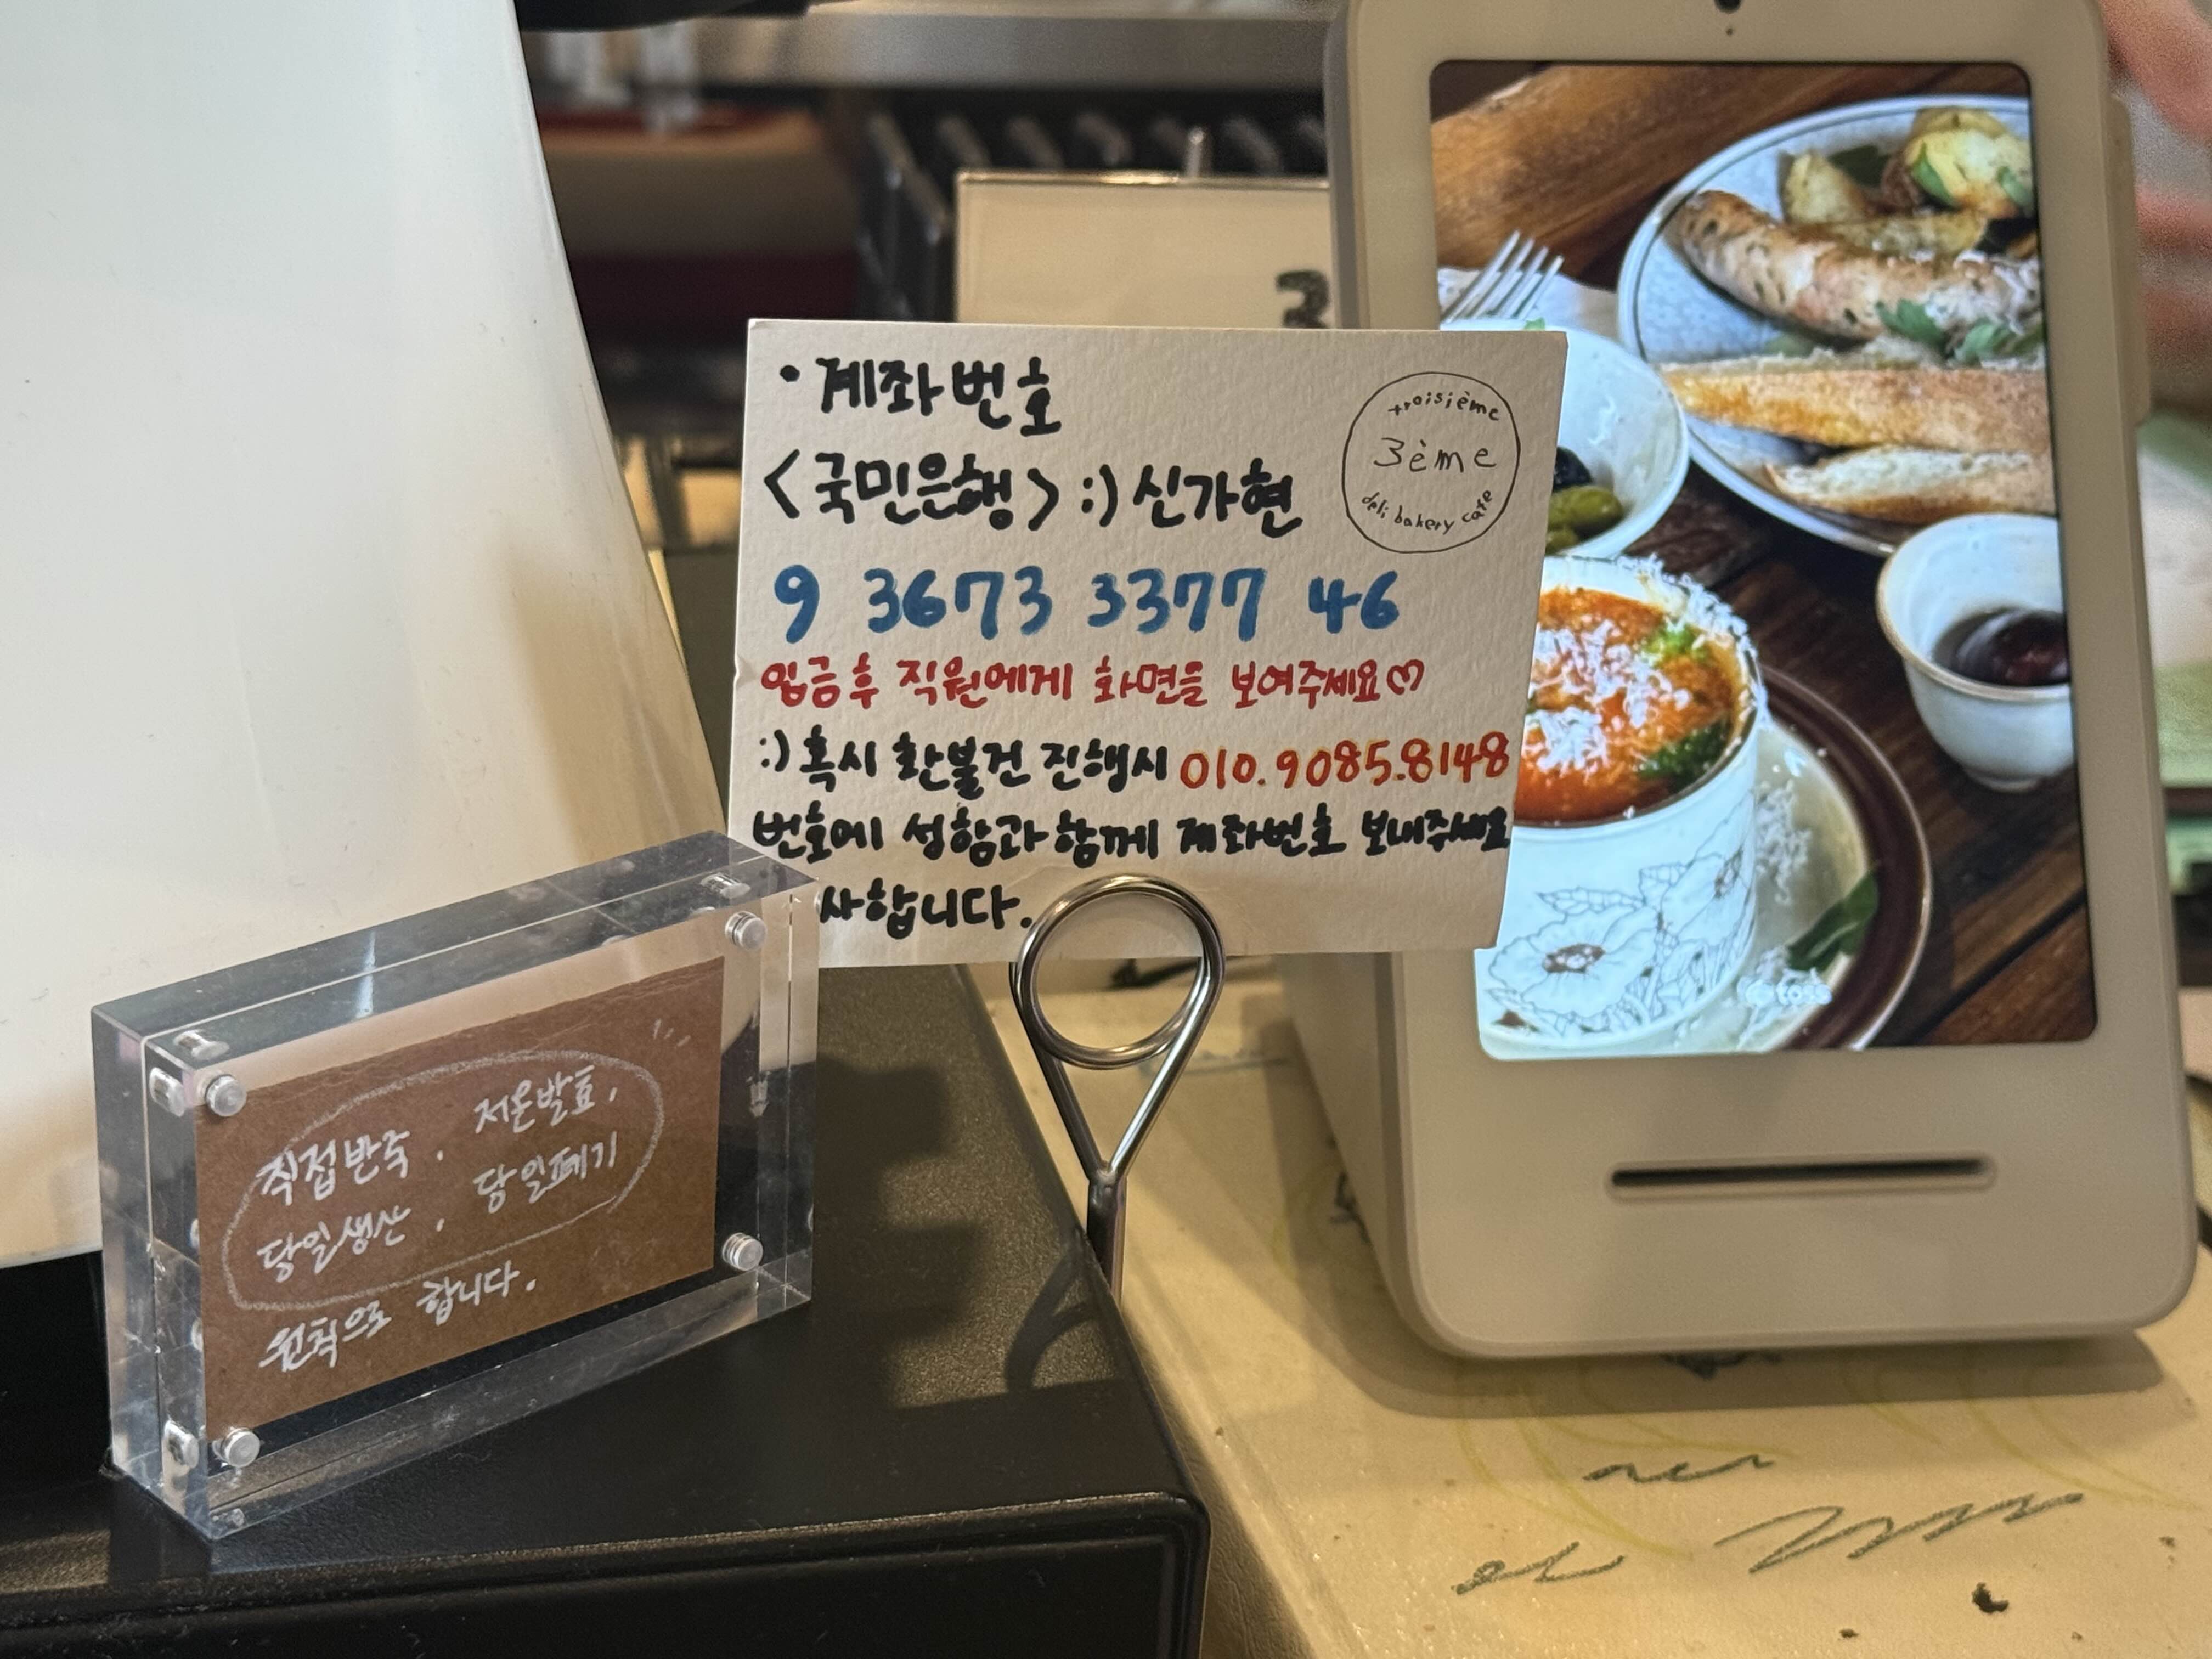 · 계좌번호
<국민은행> :) 신가현
troisième
3ème
deli bakery cafe
9 3673 3377 46
입금후 직원에게 화면을 보여주세요♡
:) 혹시 환불건 진행시 010.9085.8148
번호에 성함과 함께 계좌번호 보내주세요
사합니다.
직접반죽. 저온발효,
당일생산. 당일폐기
원칙으로 합니다.
3
toss